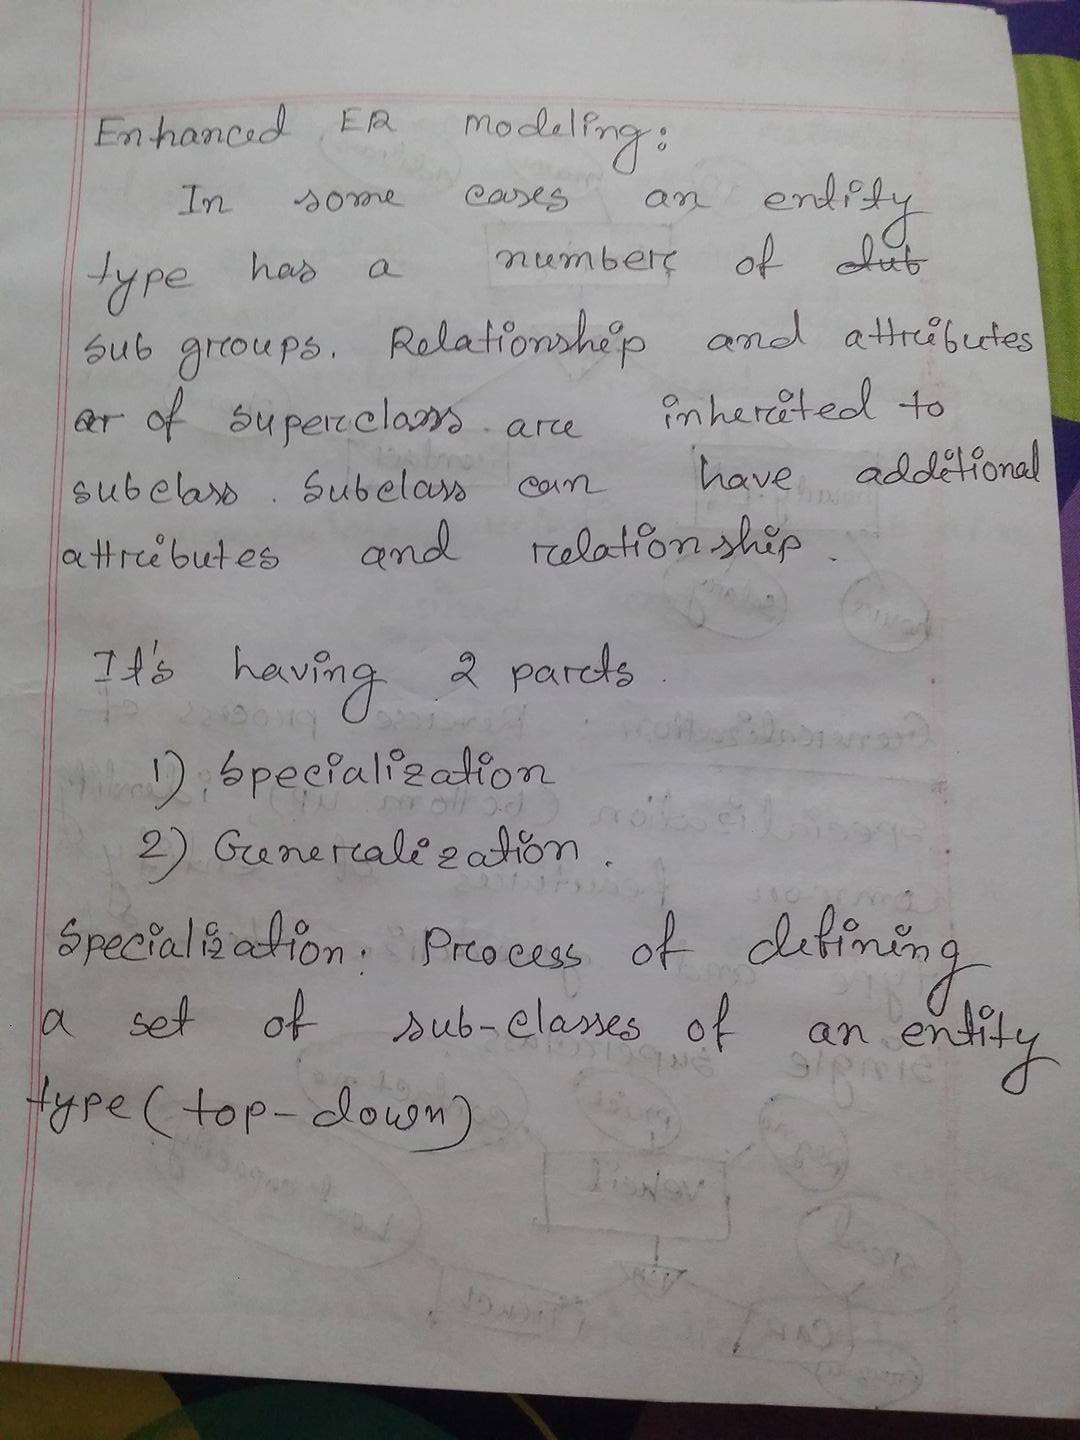 Enhanced ER modeling:
In some cases an entity
type has a number of
sub groups. Relationship and attributes
of superclass are inherited to
subclass. Subclass can have additional
attributes and relationship.
It's having 2 parts.
1) Specialization
2) Generalization.
Specialization: Process of defining
a set of sub-classes of an entity
type (top-down)